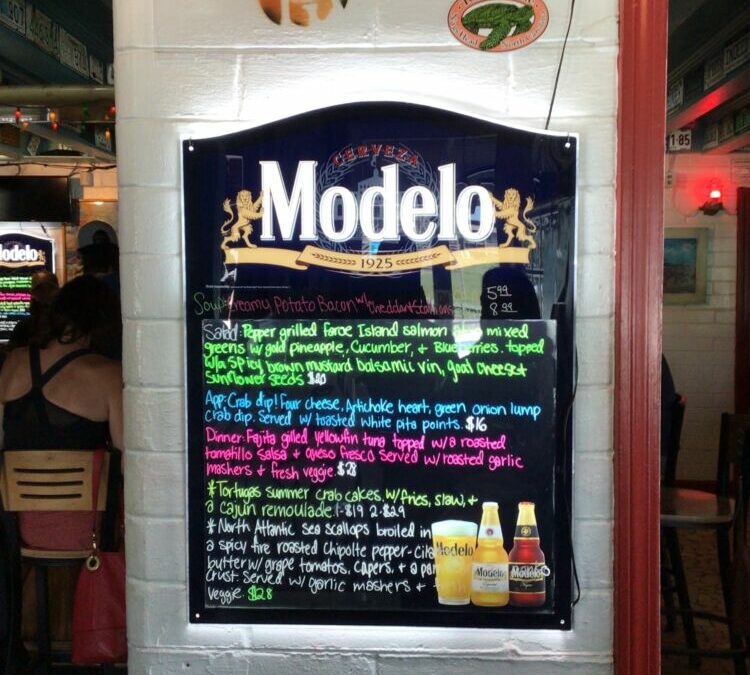 CERVEZA
Modelo
1925
Soup: Creamy Potato Bacon w/ Cheddar + Scallions 5.99
8.99
Salad: Pepper grilled faroe Island salmon mixed
greens w/ gold pineapple, Cucumber, + Blueberries. topped
w/a spicy brown mustard balsamic vin, goat cheese +
sunflower seeds $20
App: Crab dip! Four cheese, Artichoke heart, green onion lump
Crab dip. Served w/ toasted white pita points. $16
Dinner: Fajita grilled yellowfin tuna topped w/a roasted
tomatillo salsa + queso fresco served w/ roasted garlic
mashers + fresh veggie. $28
* Tortugas summer crab cakes, w/ fries, slaw, +
a cajun remoulade. 1-$19 2-$29
* North Atlantic sea scallops broiled in
a spicy fire roasted Chipolte pepper-
butter w/ grape tomatoes, capers, + a
Crust. Served w/ garlic mashers +
Veggie. $28
Modelo
Modelo
Modelo
odelo
1-85